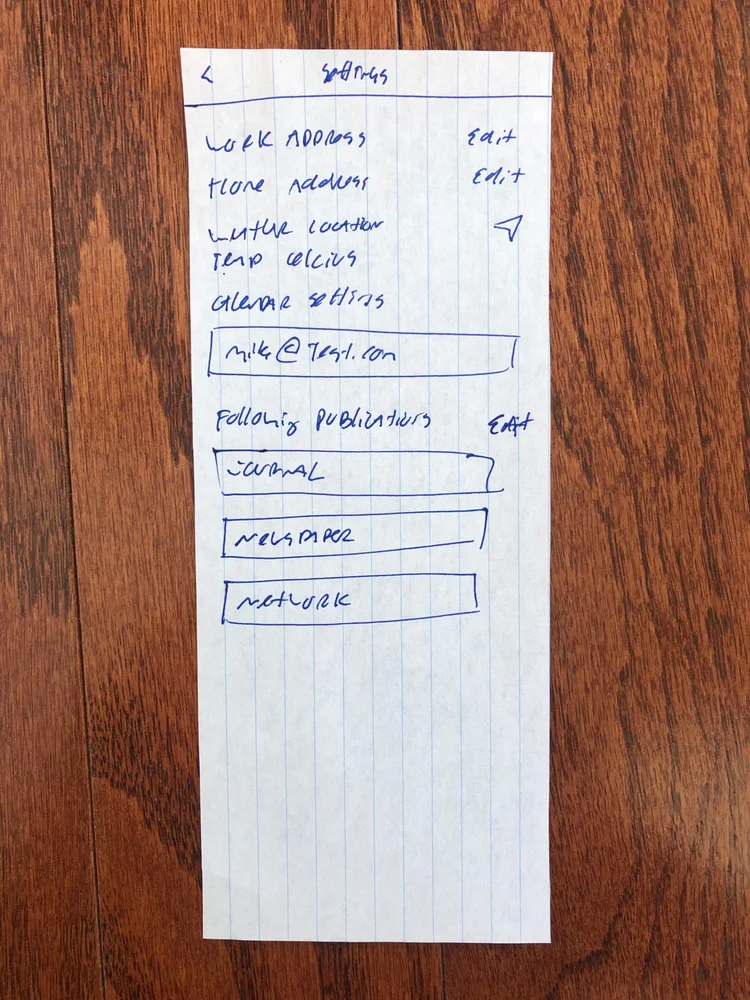 < Settings
Work Address Edit
Home Address Edit
Weather Location
Temp Celcius
Calendar Settings
mike@Test.com
Following Publications Edit
Journal
Newspaper
Network